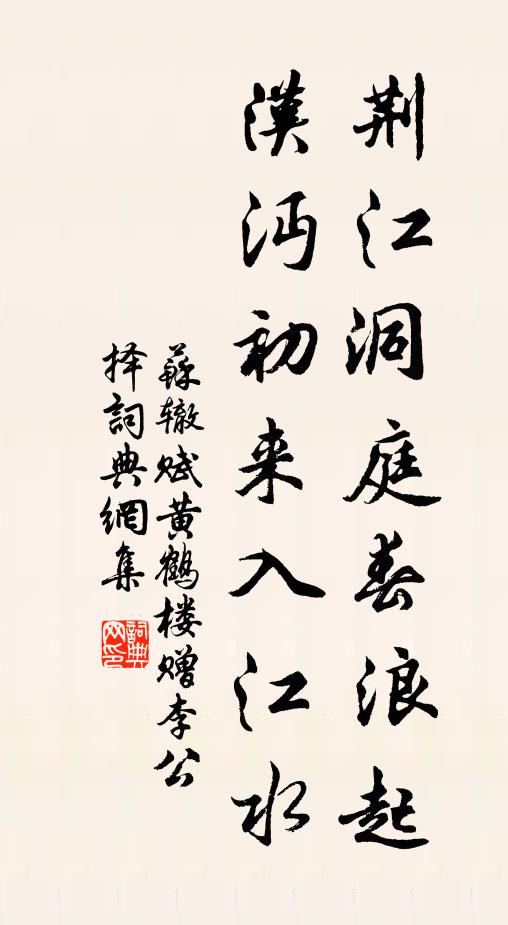 荆江洞庭春浪起
漢沔初来入江水
蘇辙赋黄鹤楼赠李公
择詞典網集
詞典网印